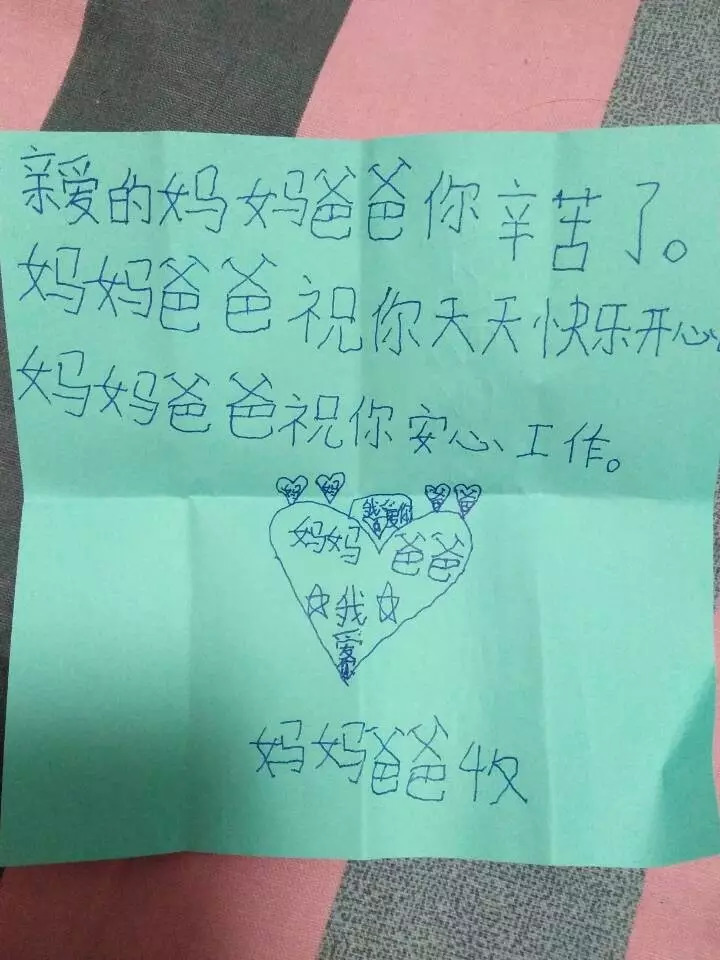 亲爱的妈妈爸爸你辛苦了。
妈妈爸爸祝你天天快乐开心
妈妈爸爸祝你安心工作。
妈 妈 爸 爸
我爱你
妈妈 爸爸
☆我☆
爱你
妈妈爸爸收